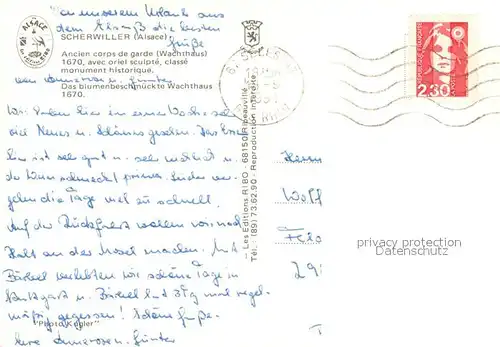 Von unserem Urlaub aus
dem Elsaß die besten
Grüße
ALSACE
SCHERWILLER (Alsace)
Ancien corps de garde (Wachthaus)
1670, avec oriel sculpté, classé
monument historique.
von Annerosen u. Günter
Das blumenbeschmückte Wachthaus
1670.
Wir haben hier in einer Woche sehr
viel Neues u. Schönes gesehen. Das Essen
hier ist sehr gut u. sehr reichlich u.
der Wein schmeckt prima. Leider ver-
gehen die Tage viel zu schnell.
Auf der Rückfahrt wollen wir noch
Halt an der Mosel machen. Mit
Bärbel verlebten wir schöne Tage in
Stuttgart u. Bärbel hat mal regel-
mäßig gegessen! Schöne Grüße
"Photo Kugler"
Ihre Annerosen. Günter
— Les Editions RIBO - 68150 Ribeauvillé
Tél.: (89) 73.62.90 - Reproduction interdite
2,30
Herrn
Wolf
29
privacy protection
Datenschutz